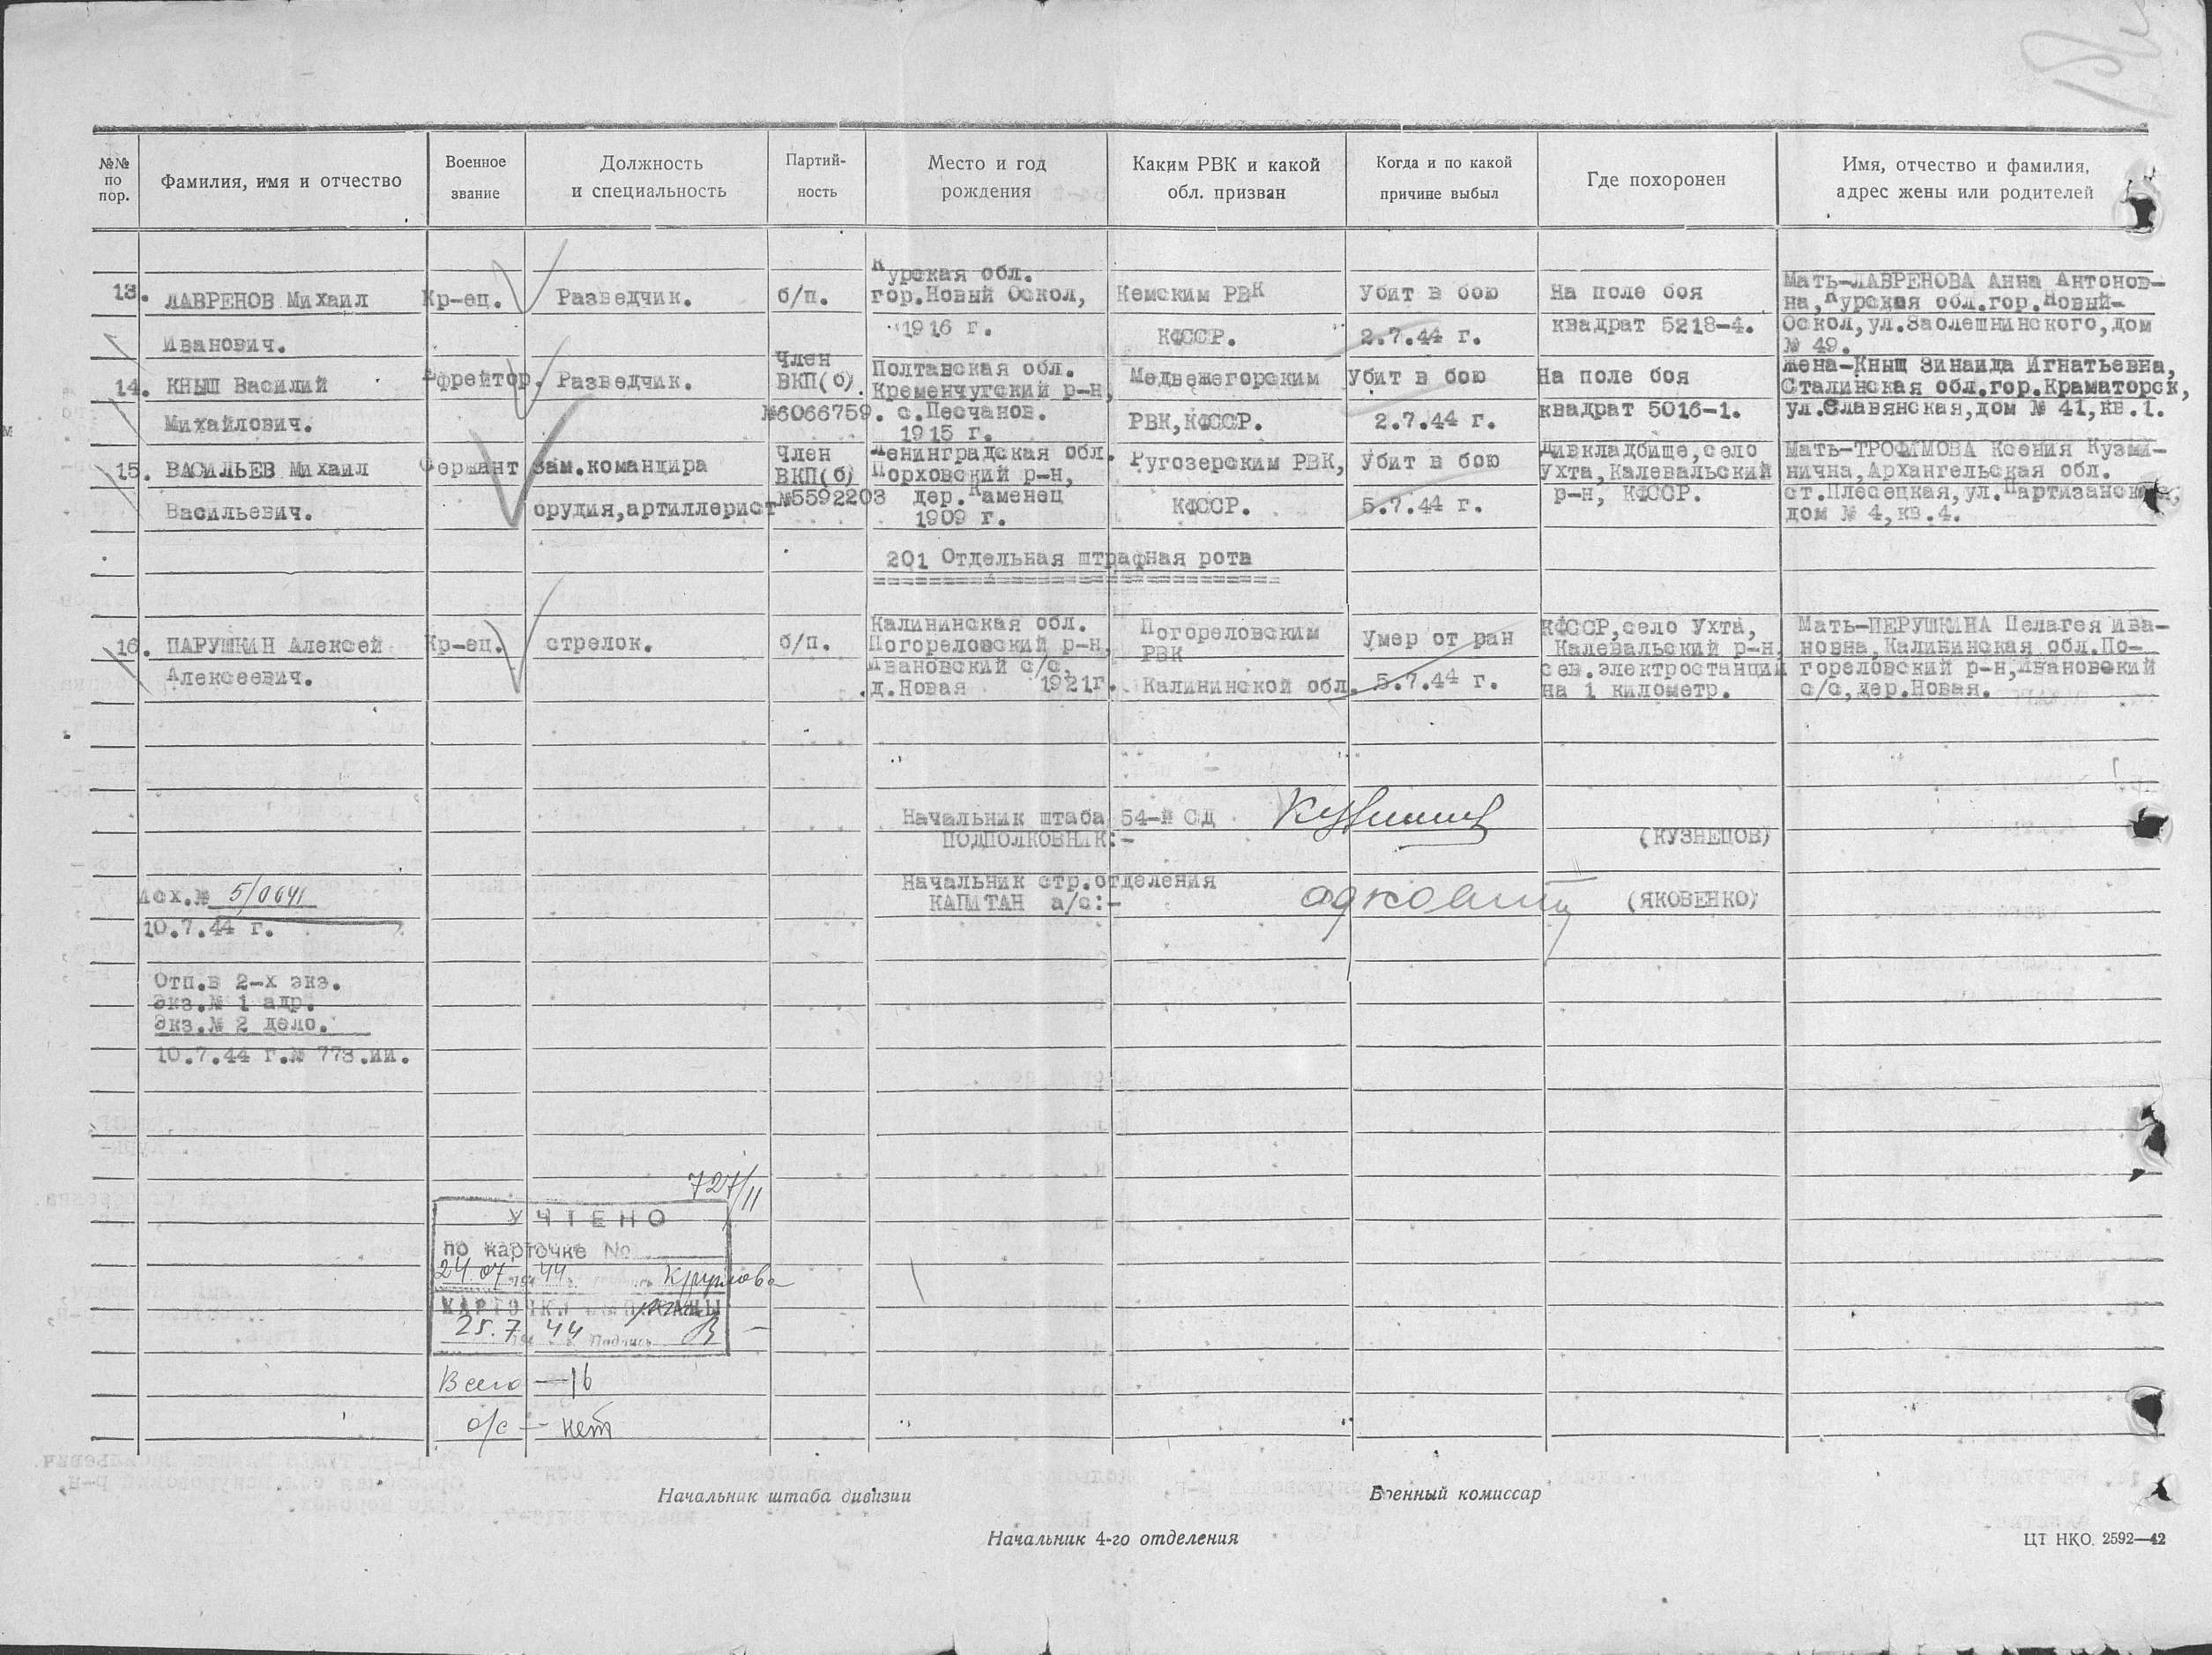 №№ по пор.
Фамилия, имя и отчество
Военное звание
Должность и специальность
Партий-ность
Место и год рождения
Каким РВК и какой обл. призван
Когда и по какой причине выбыл
Где похоронен
Имя, отчество и фамилия, адрес жены или родителей
13.
ЛАВРЕНОВ Михаил
Иванович.
Кр-ец.
Разведчик.
б/п.
Курская обл.
гор.Новый Оскол,
1916 г.
Кемским РВК
КФССР.
Убит в бою
2.7.44 г.
На поле боя
квадрат 5218-4.
Мать-ЛАВРЕНОВА Анна Антонов-
на,Курская обл.гор.Новый-
Оскол,ул.Заолешнинского,дом
№ 49.
14.
КНЫШ Василий
Михайлович.
Ефрейтор.
Разведчик.
Член
ВКП(б).
№6066759.
Полтавская обл.
Кременчугский р-н,
с.Песчанов.
1915 г.
Медвежегорским
РВК,КФССР.
Убит в бою
2.7.44 г.
На поле боя
квадрат 5016-1.
Жена-Кныщ Зинаида Игнатьевна,
Сталинская обл.гор.Краматорск,
ул.Славянская,дом № 41,кв.1.
15.
ВАСИЛЬЕВ Михаил
Васильевич.
Сержант
Зам.командира
орудия,артиллерист
Член
ВКП(б)
№5592203
Ленинградская обл.
Порховский р-н,
дер.Каменец
1909 г.
Ругозерским РВК,
КФССР.
Убит в бою
5.7.44 г.
Дивкладбище,село
Ухта,Калевальский
р-н, КФССР.
Мать-ТРОФИМОВА Ксения Кузьми-
нична,Архангельская обл.
ст.Плесецкая,ул.Партизанская,
дом № 4,кв.4.
201 Отдельная штрафная рота
=============================
16.
ПАРУШКИН Алексей
Алексеевич.
Кр-ец.
стрелок.
б/п.
Калининская обл.
Погореловский р-н,
Ивановский с/с,
д.Новая 1921г.
Погореловским
РВК
Калининской обл.
Умер от ран
5.7.44 г.
КФССР,село Ухта,
Калевальский р-н,
сев.электростанции
на 1 километр.
Мать-ПЕРУШКИНА Пелагея Ива-
новна,Калининская обл.По-
гореловский р-н,Ивановский
с/с,дер.Новая.
Начальник штаба 54-й СД
ПОДПОЛКОВНИК:-
(КУЗНЕЦОВ)
Начальник стр.отделения
КАПИТАН а/с:-
(ЯКОВЕНКО)
Исх.№ 5/0641
10.7.44 г.
Отп.в 2-х экз.
Экз.№ 1 адр.
Экз.№ 2 дело.
10.7.44 г.№ 773.ии.
727/11
УЧТЕНО
по карточке №
24.07 194 44 г. Круглова
КАРТОЧКИ ВЫПИСАНЫ
25.7 194 44 г. Подпись
Всего — 16
о/с — нет
Начальник штаба дивизии
Военный комиссар
Начальник 4-го отделения
ЦТ НКО. 2592—42